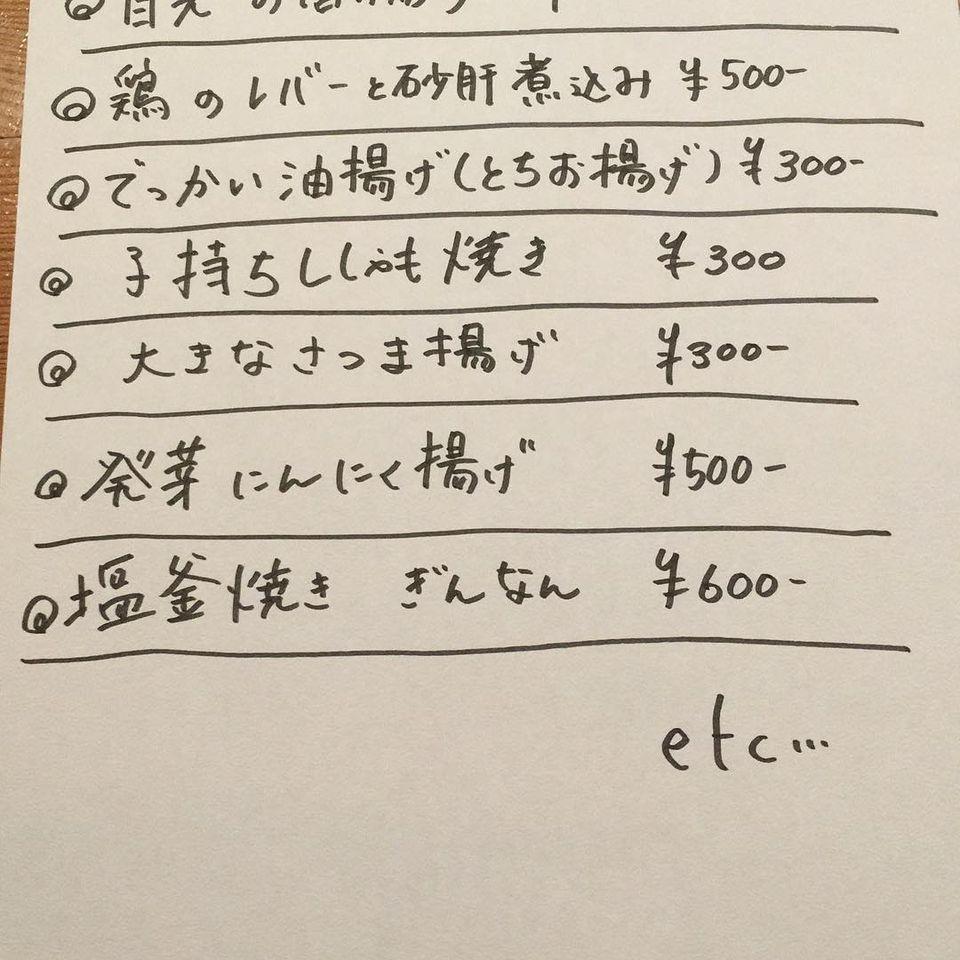 ◎鶏のレバーと砂肝煮込み ¥500-
◎でっかい油揚げ(とちお揚げ) ¥300-
◎ 子持ちししゃも焼き ¥300
◎ 大きなさつま揚げ ¥300-
◎ 発芽にんにく揚げ ¥500-
◎塩釜焼き ぎんなん ¥600-
etc...